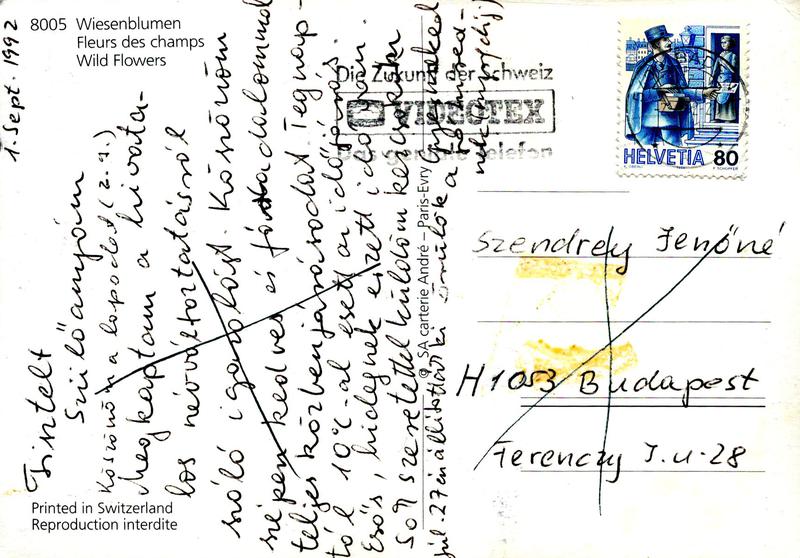 8005 Wiesenblumen
Fleurs des champs
Wild Flowers
1. Sept. 1992
Tisztelt
Szülőanyám
Köszönöm a lapodat (2.9.)
Megkaptam a hivata-
los névváltoztatásról
szóló igazolást. Köszönöm
szépen kedves és fáradalommal
teljes közbenjárásodat. Tegnap-
tól 10°C-al esett az időjárás.
Esős, hidegnek érzett idő van.
Sok szeretettel küldöm kézcsókom
júl. 27 én állították ki Örülök a
Die Zukunft der Schweiz
VIDEOTEX
Das geniale Telefon
HELVETIA 80
© SA carterie André – Paris-Evry
Szendrey Jenőné
H 1053 Budapest
Ferenczy I. u. 28
Printed in Switzerland
Reproduction interdite